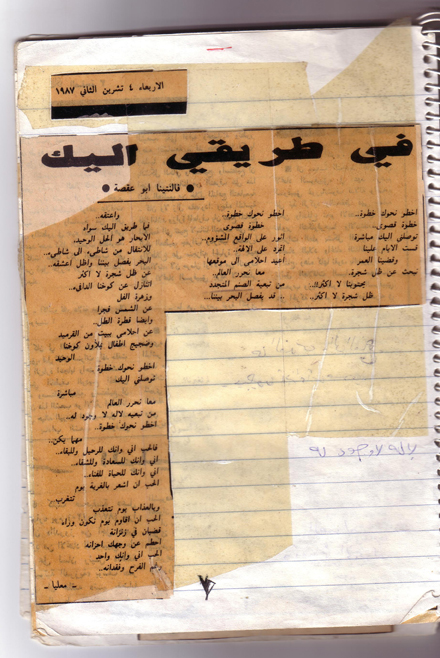 الاربعاء ٤ تشرين الثاني ١٩٨٧
في طريقي اليك
• فالنتينا ابو عقصة •
اخطو نحوك خطوة..
خطوة قصوى.
توصلني اليك مباشرة
قست الايام علينا
وقضينا العمر
نبحث عن ظل شجرة
يحتوينا لا اكثر!!..
ظل شجرة لا اكثر..
اخطو نحوك خطوة..
خطوة قصوى
اثور على الواقع المشؤوم..
اتمرد على الالهة..
اعيد احلامي الى موقعها
معا نحرر العالم..
من تبعية الصنم المتجدد
.. قد يفصل البحر بيننا..
واعتقه.
فما طريق اليك سواه
الابحار هو الحل الوحيد.
للانتقال من شاطيء الى شاطيء..
البحر يفصل بيننا واظل اعشقه..
عن ظل شجرة لا اكثر
اتنازل عن كوخنا الدافيء..
وزهرة الفل
عن الشمس فجرا
وايضا قطرة الطل.
عن احلامي ببيت من القرميد
وضجيج اطفال يملأون كوخنا
الوحيد
اخطو نحوك خطوة
توصلني اليك
مباشرة
معا نحرر العالم
من تبعيه لاله لا وجود له..
اخطو نحوك خطوة..
مهما يكن..
فالحب اني وانك للرحيل وللبقاء..
اني وانك للسعادة وللشقاء..
اني وانك للحياة للفناء..
الحب ان اشعر بالغربة يوم
تتغرب
وبالعذاب يوم تتعذب
الحب ان اقاوم يوم تكون وراء
قضبان في زنزانة
احطم عن وجهك احزانه
الحب اني وانك واحد
رغم الفرح وفقدانه..
- معليا -